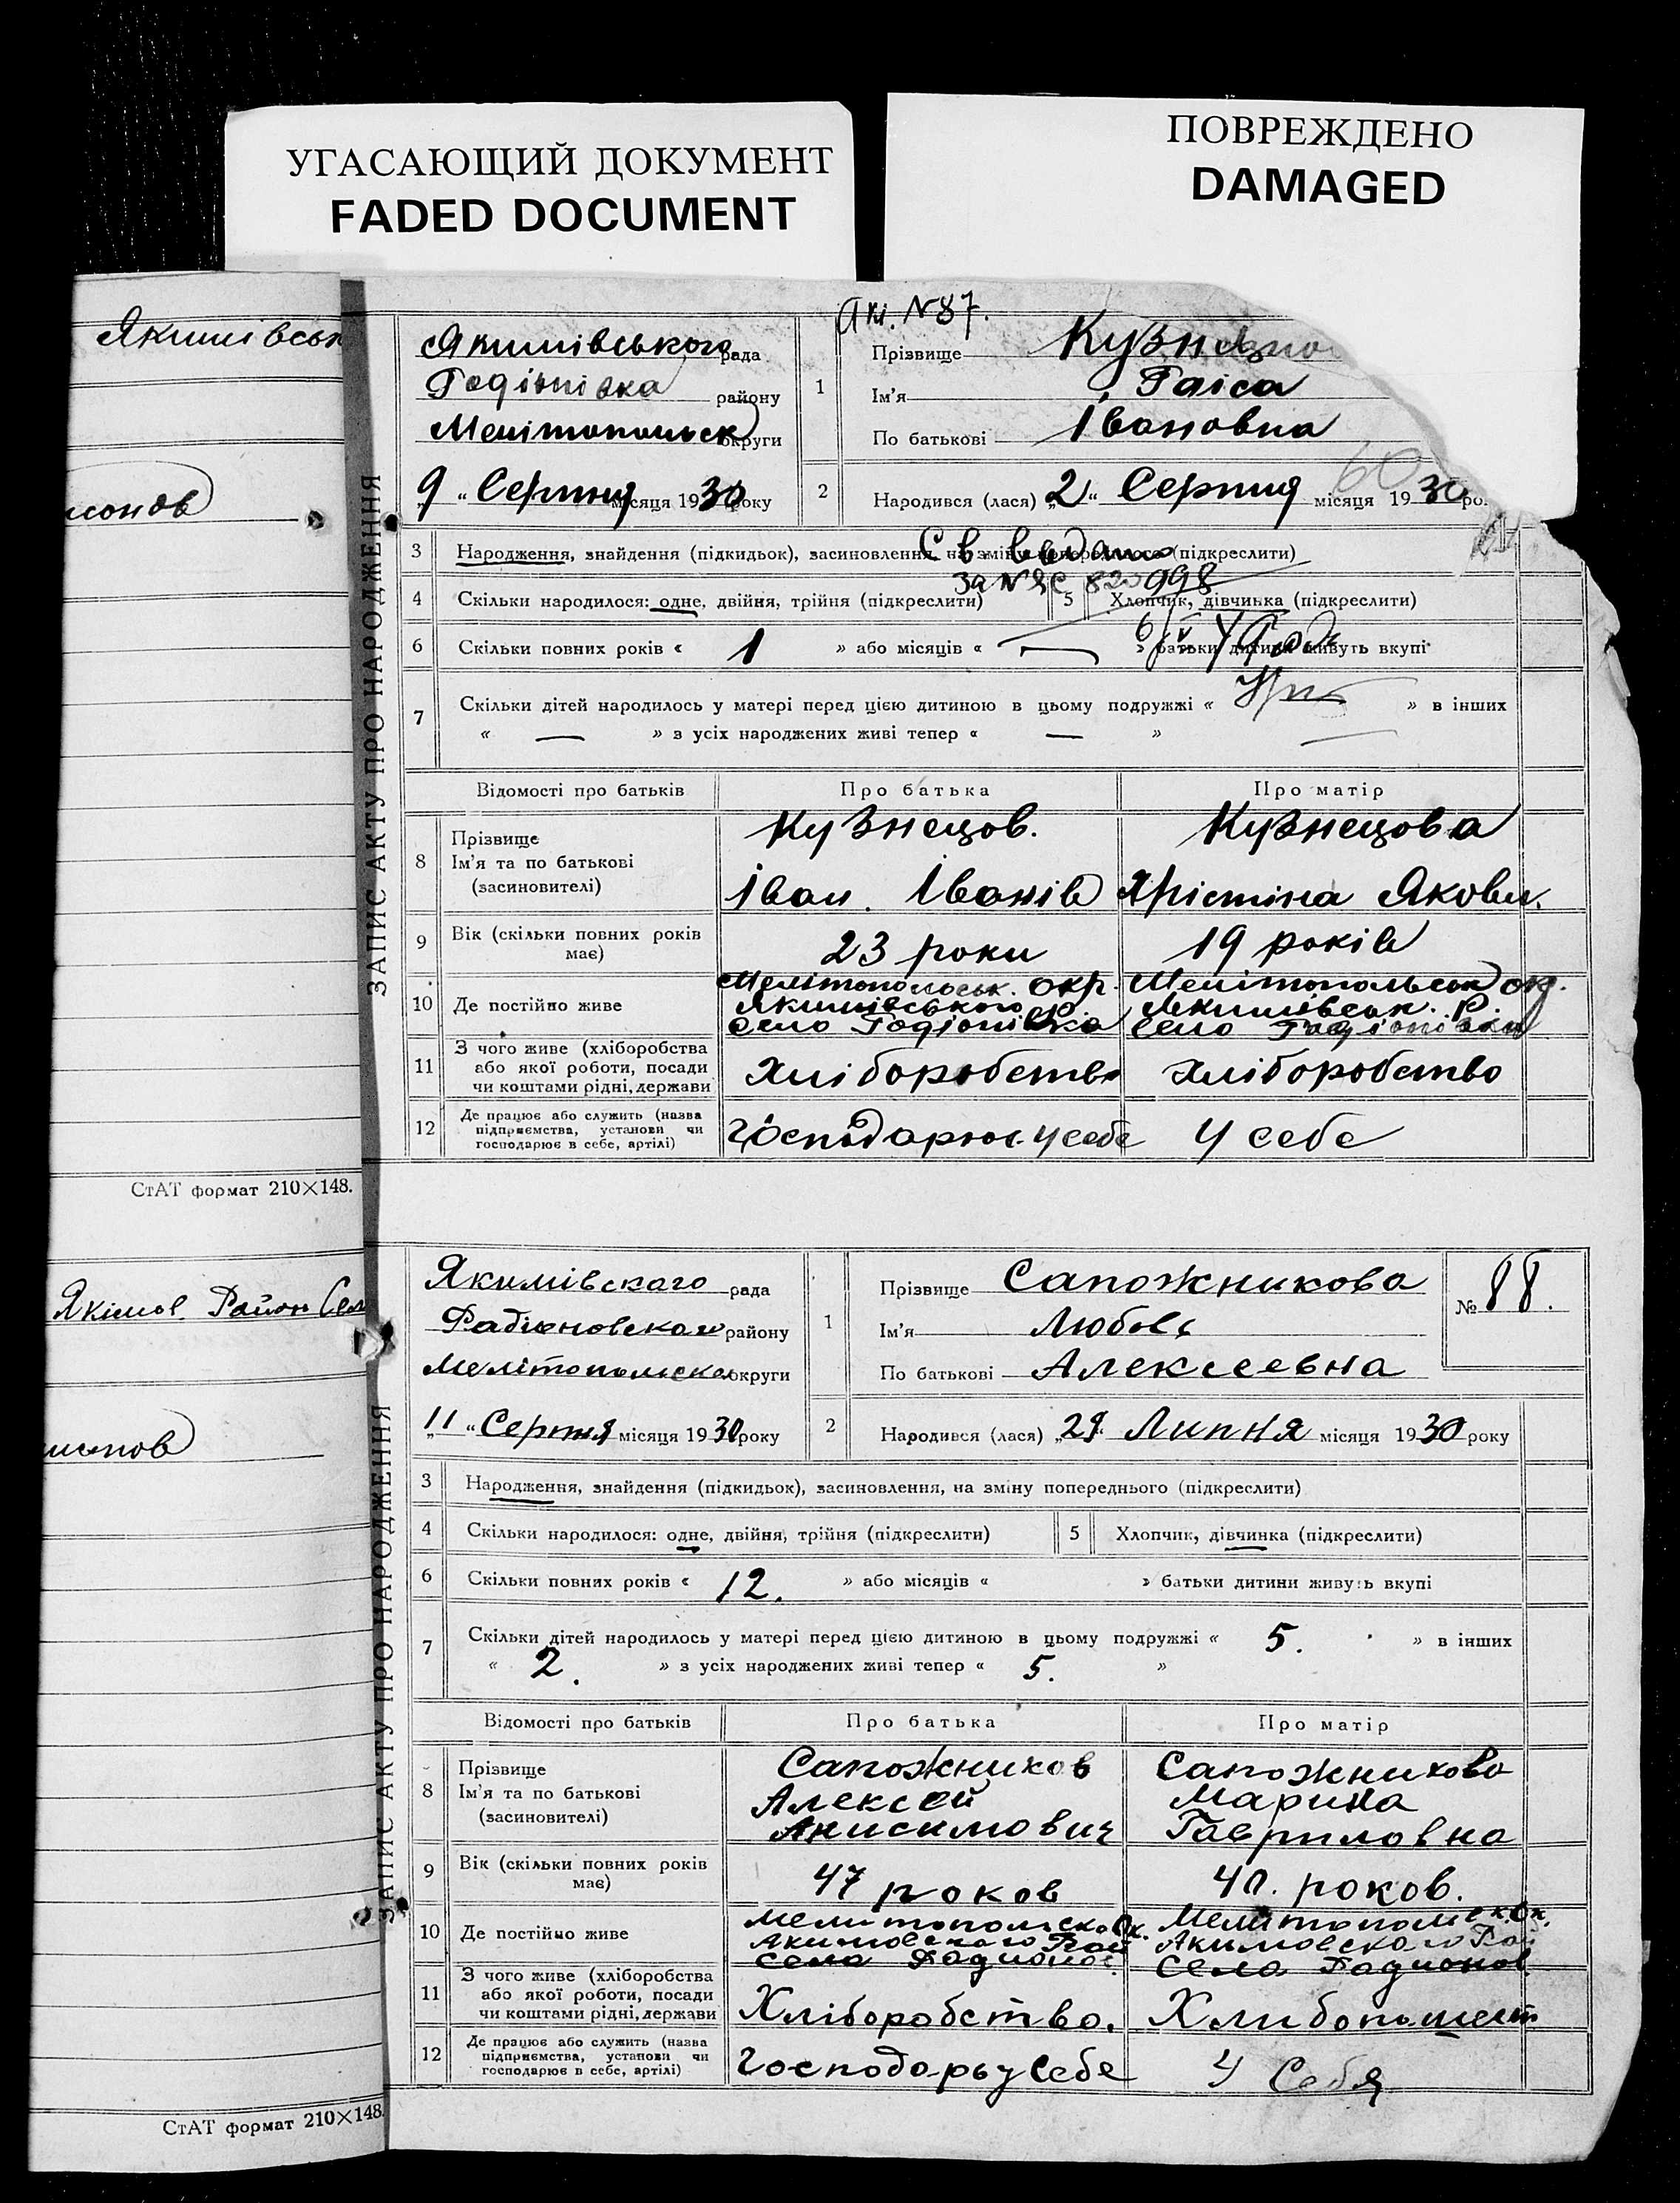 УГАСАЮЩИЙ ДОКУМЕНТ
FADED DOCUMENT
ПОВРЕЖДЕНО
DAMAGED
Якимівськ
СтАТ формат 210×148.
Якімов. Район Сел
СтАТ формат 210×148.
ЗАПИС АКТУ ПРО НАРОДЖЕННЯ
Акт. №87.
Якимівського рада
Родіонівка району
Мелітопольськ округи
9 „ Серпня місяця 1930 року
1 Прізвище Кузнецо
Ім'я Раіса
По батькові Івановна
2 Народився (лася) „2“ Серпня місяця 1930 ро.
60
3 Народження, знайдення (підкидьок), засиновлення, на зміну попереднього (підкреслити)
Св. видано
за № 820998
4 Скільки народилося: одне, двійня, трійня (підкреслити) 5 Хлопчик, дівчинка (підкреслити)
6 Скільки повних років « 1 » або місяців « — » батьки дитини живуть вкупі
7 Скільки дітей народилось у матері перед цією дитиною в цьому подружжі « » в інших
« — » з усіх народжених живі тепер « — »
Відомості про батьків Про батька Про матір
8 Прізвище Кузнецов. Кузнецова
Ім'я та по батькові
(засиновителі) Іван. Іванів Хрістіна Яковл.
9 Вік (скільки повних років має) 23 роки 19 років
10 Де постійно живе Мелітопольськ. окр. Мелітопольськ окр.
Якимівського Р. Якимівськ. Р.
село Родіонівка село Родіонівки
11 З чого живе (хліборобства або якої роботи, посади чи коштами рідні, держави Хліборобство Хліборобство
12 Де працює або служить (назва підприємства, установи чи господарює в себе, артілі) Господарює у себе У себе
ЗАПИС АКТУ ПРО НАРОДЖЕННЯ
Якимівскаго рада
Радіоновская району
Мелітопольска округи
„11“ Серпня місяця 1930 року
1 Прізвище Сапожникова
Ім'я Любовь
По батькові Алексеевна
№ 88.
2 Народився (лася) „29“ Липня місяця 1930 року
3 Народження, знайдення (підкидьок), засиновлення, на зміну попереднього (підкреслити)
4 Скільки народилося: одне, двійня, трійня (підкреслити) 5 Хлопчик, дівчинка (підкреслити)
6 Скільки повних років « 12. » або місяців « » батьки дитини живуть вкупі
7 Скільки дітей народилось у матері перед цією дитиною в цьому подружжі « 5. » в інших
« 2. » з усіх народжених живі тепер « 5. »
Відомості про батьків Про батька Про матір
8 Прізвище Сапожников Сапожникова
Ім'я та по батькові Алексей Марина
(засиновителі) Анисимович Гавриловна
9 Вік (скільки повних років має) 47 роков 40. роков.
10 Де постійно живе Мелитопольско Ок. Мелитопольск. Ок.
Акимовскаго Рай Акимовскаго Рай
села Радионов. села Радионов.
11 З чого живе (хліборобства або якої роботи, посади чи коштами рідні, держави Хліборобство.
12 Де працює або служить (назва підприємства, установи чи господарює в себе, артілі) Господарь у Себе У Себя